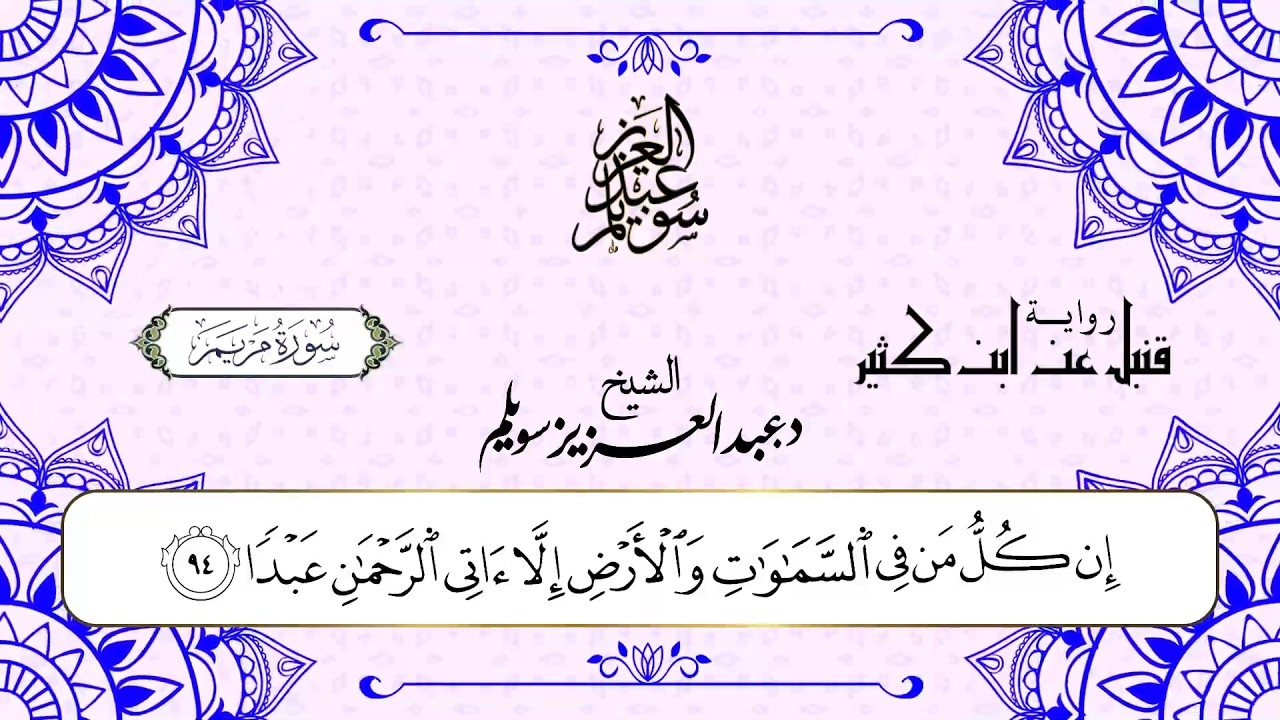 عبد العزيز سويلم
رواية
قنبل عن ابن كثير
سُورَةُ مَرْيَمَ
الشيخ
د عبد العزيز سويلم
إِن كُلُّ مَن فِى ٱلسَّمَـٰوَٰتِ وَٱلْأَرْضِ إِلَّا ءَاتِى ٱلرَّحْمَـٰنِ عَبْدًا ٩٤